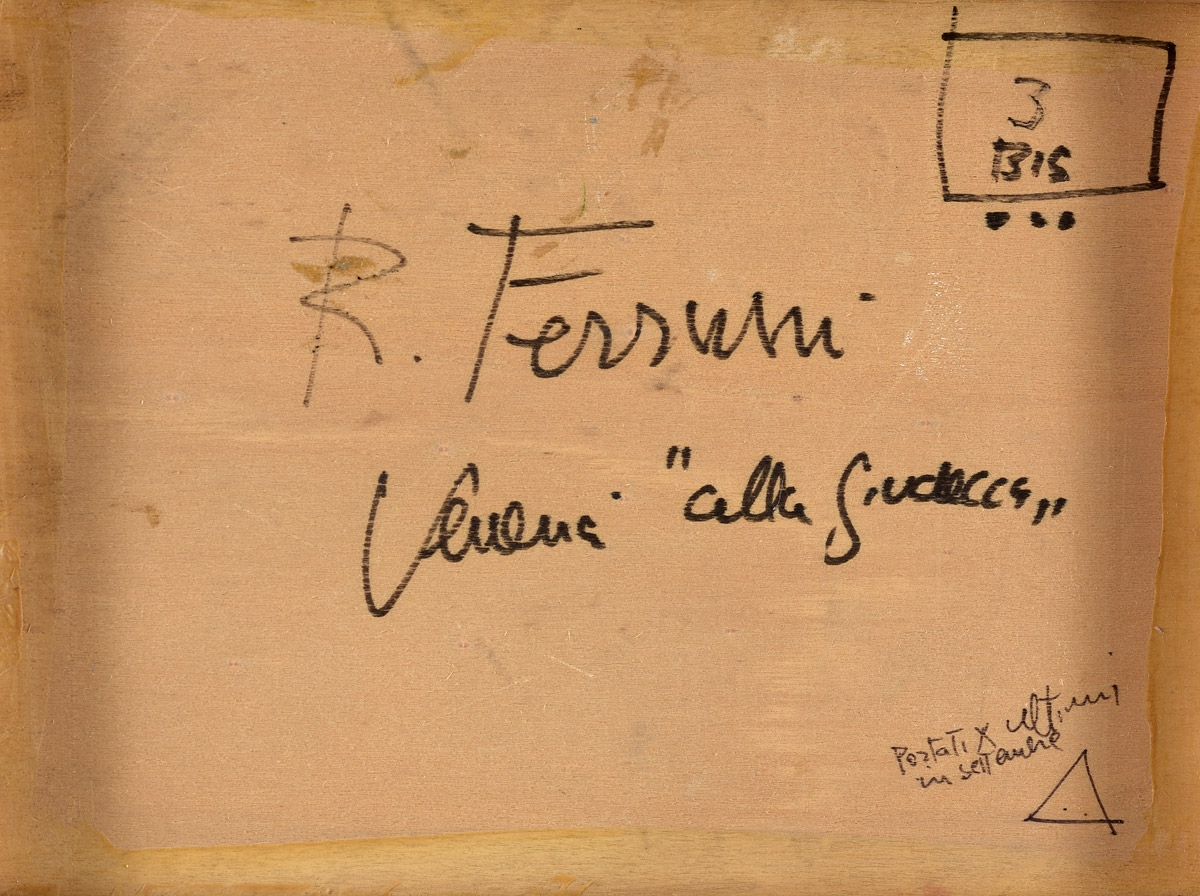 3
BIS
R. Ferruzzi
Venezia "alla Giudecca„
Portati X ultimi
in settembre